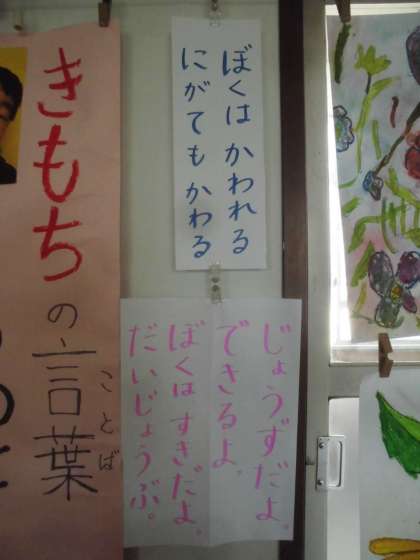 ぼくは かわれる
にがても かわる
じょうずだよ。
できるよ。
ぼくは すきだよ。
だいじょうぶ。
きもちの言葉
ことば